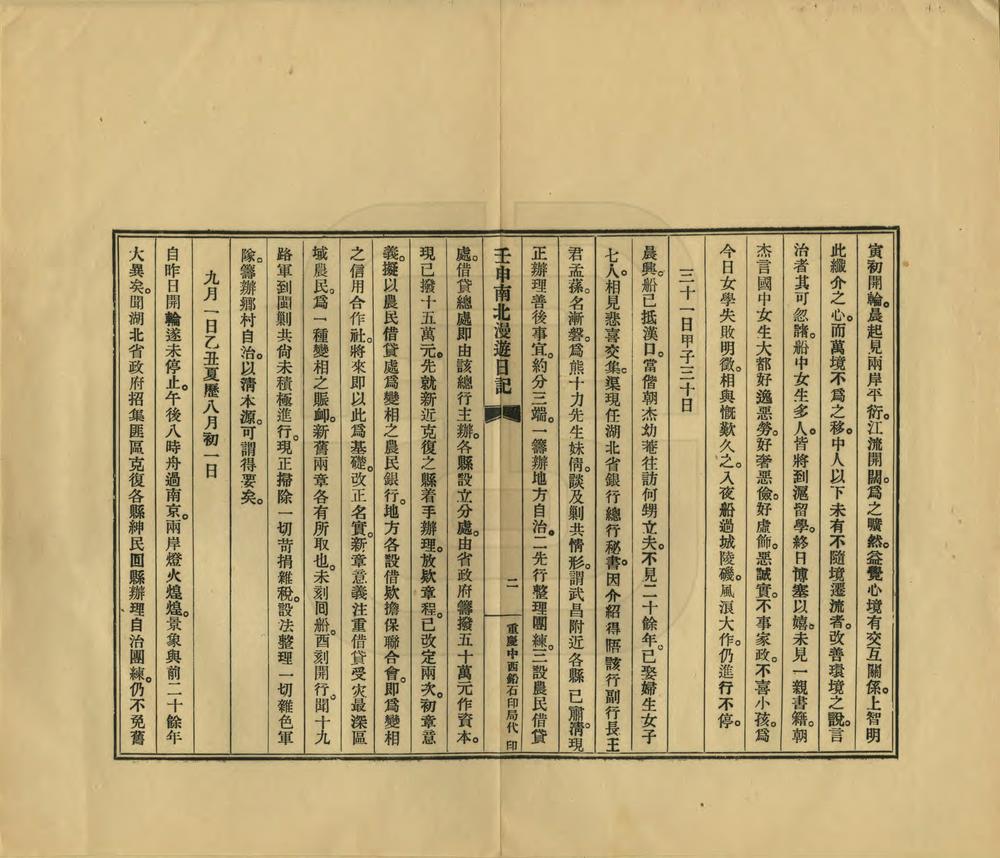 寅初開輪。晨起見兩岸平衍。江流開闊。爲之曠然。益覺心境有交互關係。上智明
此纖介之心。而萬境不爲之移。中人以下未有不隨境遷流者。改善環境之說。言
治者其可忽諸。船中女生多人。皆將到滬留學。終日博塞以嬉。未見一親書籍。朝
杰言國中女生大都好逸惡勞。好奢惡儉。好虛飾。惡誠實。不事家政。不喜小孩。爲
今日女學失敗明徵。相與慨歎久之。入夜船過城陵磯。風浪大作。仍進行不停。
三十一日甲子三十日
晨興。船已抵漢口。當偕朝杰幼菴往訪何甥立夫。不見二十餘年。已娶婦生女子
七人。相見悲喜交集。渠現任湖北省銀行總行秘書。因介紹得晤該行副行長王
君孟蓀。名漸磐。爲熊十力先生妹倩。談及剿共情形。謂武昌附近各縣已肅清。現
正辦理善後事宜。約分三端。一籌辦地方自治。二先行整理團練。三設農民借貸
壬申南北漫遊日記
二
重慶中西鉛石印局代印
處。借貸總處即由該總行主辦。各縣設立分處。由省政府籌撥五十萬元作資本。
現已撥十五萬元。先就新近克復之縣着手辦理。放欵章程。已改定兩次。初章意
義。擬以農民借貸處爲變相之農民銀行。地方各設借欵擔保聯合會。即爲變相
之信用合作社。將來即以此爲基礎。改正名實。新章意義注重借貸受災最深區
域農民。爲一種變相之賑卹。新舊兩章各有所取也。未刻回船。酉刻開行。聞十九
路軍到閩剿共尙未積極進行。現正掃除一切苛捐雜稅。設法整理一切雜色軍
隊。籌辦鄉村自治。以清本源。可謂得要矣。
九月一日乙丑夏歷八月初一日
自昨日開輪。遂未停止。午後八時舟過南京。兩岸燈火煌煌。景象與前二十餘年
大異矣。聞湖北省政府招集匪區克復各縣紳民回縣辦理自治團練。仍不免舊